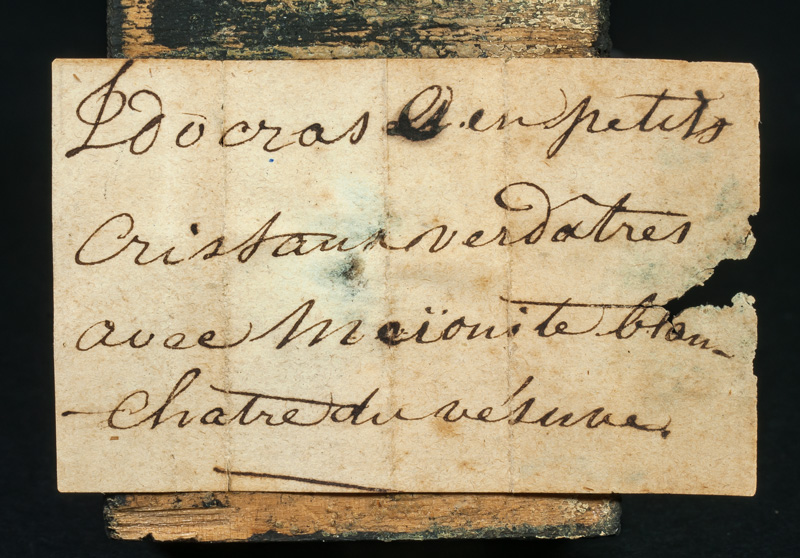 Idocrase en petits
Cristaux verdâtres
avec Meïonite blan-
-chatre du vésuve.